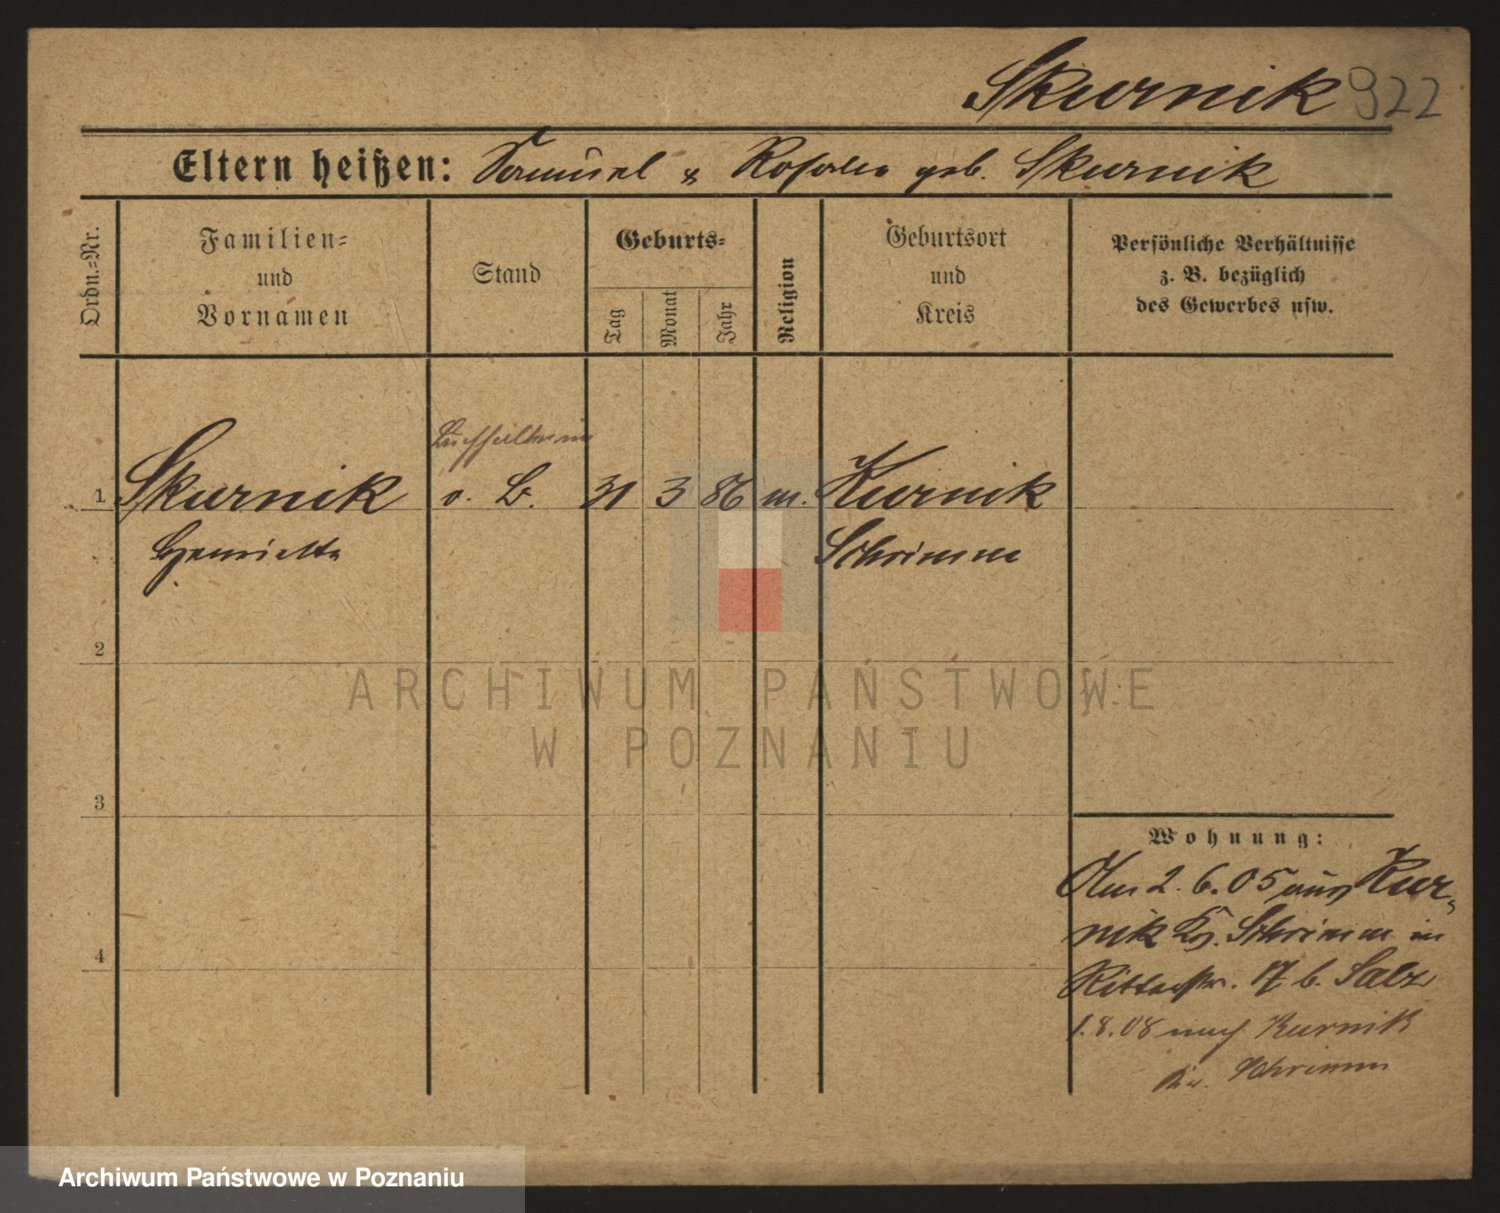 Skurnik 922
Eltern heißen: Samuel & Rosalie geb. Skurnik
Ordn.-Nr.
Familien-
und
Vornamen
Stand
Geburts-
Tag
Monat
Jahr
Religion
Geburtsort
und
Kreis
Persönliche Verhältnisse
z. B. bezüglich
des Gewerbes usw.
1 Skurnik o. B. 31 3 86 m. Kurnik
Henriette Schrimm
2
3
4
Wohnung:
Am 2. 6. 05 aus Kur-
nik Kr. Schrimm in
Ritterstr. 17 b. Salz
1.8.08 nach Kurnik
Kr. Schrimm
ARCHIWUM PAŃSTWOWE
W POZNANIU
Archiwum Państwowe w Poznaniu